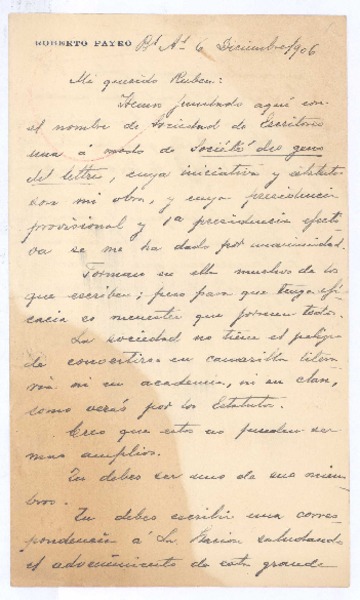 ROBERTO PAYRO Bs As 6 Diciembre/906
Mi querido Ruben:
Hemos fundado aquí con
el nombre de Sociedad de Escritores
una á modo de Société des gens
del lettres, cuya iniciativa y estatutos
son mi obra, y cuya presidencia
provisional y 1ª presidencia efecti-
va se me ha dado por unanimidad.
Forman en ella muchos de los
que escriben; pero para que tenga efi-
cacia es menester que formen todos.
La sociedad no tiene el peligro
de convertirse en camarilla litera-
ria ni en academia, ni en clan,
como verás por los Estatutos.
Creo que estos no pueden ser
mas amplios.
Tu debes ser uno de sus miem-
bros.
Tu debes escribir una corres
pondencia á La Nacion saludando
el advenimiento de esta grande